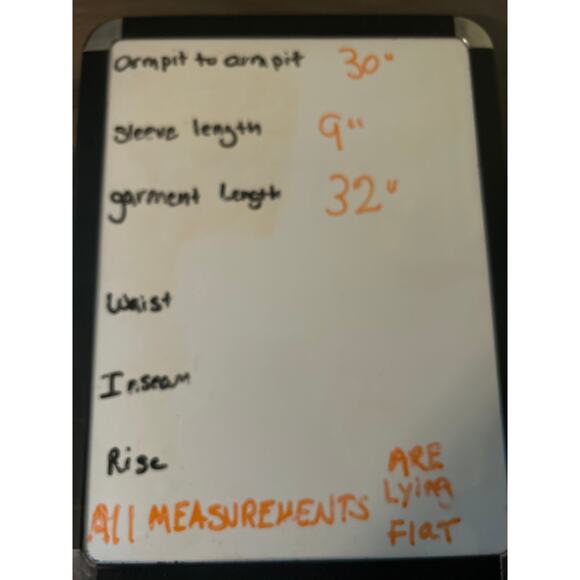 armpit to armpit 30"
Sleeve length 9"
garment Length 32"
Waist
Inseam
Rise
All MEASUREMENTS ARE Lying Flat